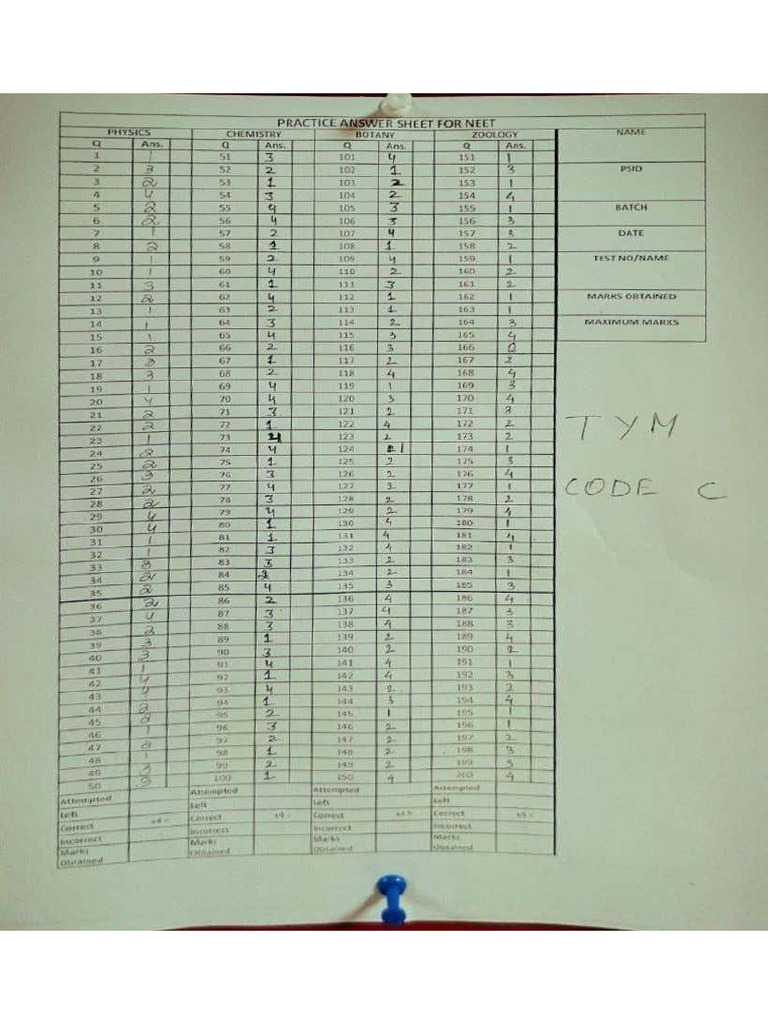 PRACTICE ANSWER SHEET FOR NEET
PHYSICS CHEMISTRY BOTANY ZOOLOGY NAME
Q Ans. Q Ans. Q Ans. Q Ans.
1 1 51 3 101 4 151 1
2 3 52 2 102 1 152 3 PSID
3 2 53 1 103 2 153 1
4 4 54 3 104 2 154 4
5 2 55 4 105 3 155 1 BATCH
6 2 56 4 106 3 156 3
7 1 57 2 107 4 157 3 DATE
8 2 58 1 108 1 158 2
9 1 59 2 109 4 159 1 TEST NO/NAME
10 1 60 4 110 2 160 2
11 3 61 1 111 3 161 2
12 2 62 4 112 1 162 1 MARKS OBTAINED
13 1 63 2 113 1 163 1
14 1 64 3 114 2 164 3 MAXIMUM MARKS
15 1 65 4 115 3 165 4
16 2 66 2 116 3 166
17 3 67 1 117 2 167 2
18 3 68 2 118 4 168 4
19 1 69 4 119 1 169 3
20 4 70 4 120 3 170 4
21 2 71 3 121 2 171 3
22 2 72 1 122 4 172 2 TYM
23 1 73 4 123 2 173 2
24 2 74 4 124 1 174 1
25 2 75 1 125 2 175 3
26 3 76 3 126 2 176 4
27 2 77 4 127 3 177 1 CODE C
28 2 78 3 128 2 178 2
29 4 79 4 129 2 179 4
30 4 80 1 130 4 180 1
31 1 81 1 131 4 181 4
32 1 82 3 132 4 182 1
33 3 83 3 133 2 183 3
34 2 84 134 2 184 1
35 2 85 4 135 3 185 3
36 2 86 2 136 4 186 4
37 4 87 3 137 4 187 3
38 2 88 3 138 4 188 3
39 3 89 1 139 2 189 4
40 3 90 3 140 2 190 2
41 1 91 4 141 4 191 1
42 4 92 1 142 4 192 3
43 4 93 4 143 2 193 2
44 2 94 1 144 3 194 4
45 2 95 2 145 1 195 1
46 1 96 3 146 2 196 1
47 2 97 2 147 2 197 2
48 1 98 1 148 2 198 3
49 3 99 2 149 2 199 3
50 3 100 1 150 4 200 4
Attempted Attempted Attempted Attempted
Left Left Left Left
Correct x4 = Correct x4 = Correct x4 = Correct x4 =
Incorrect Incorrect Incorrect Incorrect
Marks Obtained Marks Obtained Marks Obtained Marks Obtained